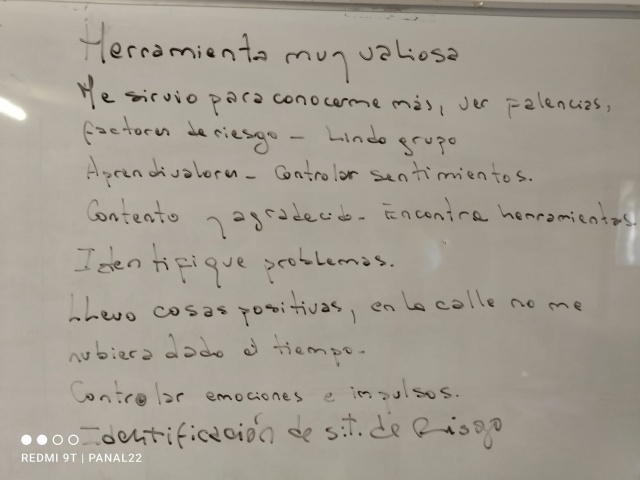 Herramienta muy valiosa
Me sirvio para conocerme más, ver falencias,
factores de riesgo - Lindo grupo
Aprendi valores - Controlar sentimientos.
Contento y agradecido - Encontra herramientas.
Identifique problemas.
LLevo cosas positivas, en la calle no me
hubiera dado el tiempo.
Controlar emociones e impulsos.
Identificación de sit. de Riesgo
REDMI 9T | PANAL22